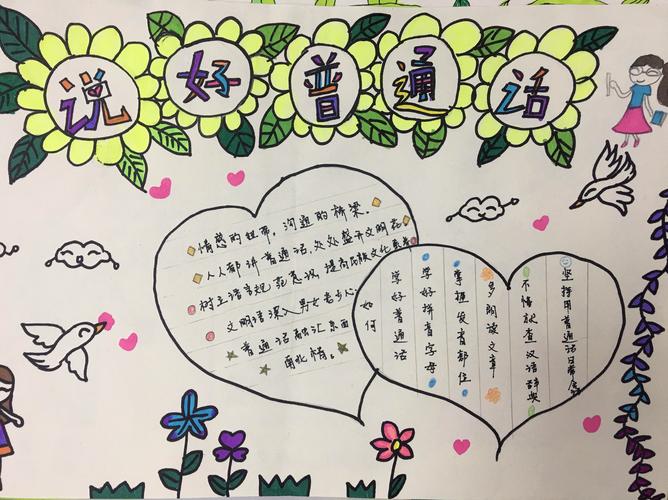 说好普通话
情感的纽带，沟通的桥梁。
人人都讲普通话，处处盛开文明花
树立语言规范意识，提高民族文化素养
文明语深入男女老少心
普通话融汇东西
南北情。
如何
学好普通话
学好拼音字母
掌握发音部位
多朗读文章
不懂就查汉语辞典
坚持用普通话日常